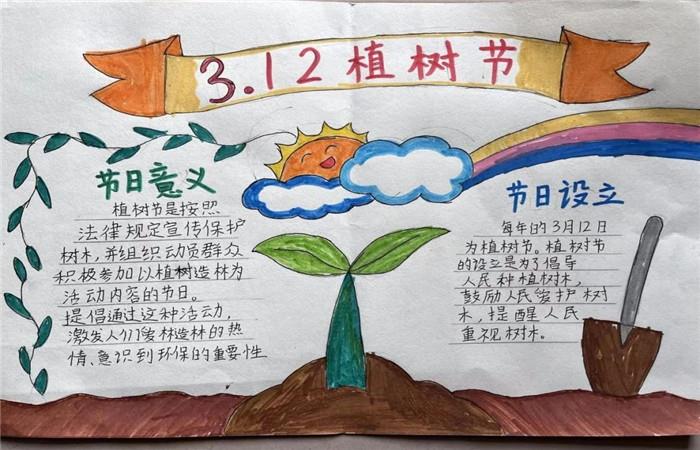 3.12植树节
节日意义
植树节是按照
法律规定宣传保护
树木,并组织动员群众
积极参加以植树造林为
活动内容的节日。
提倡通过这种活动,
激发人们爱林造林的热
情、意识到环保的重要性
节日设立
每年的3月12日
为植树节。植树节
的设立是为了倡导
人民种植树木,
鼓励人民爱护树
木,提醒人民
重视树木。